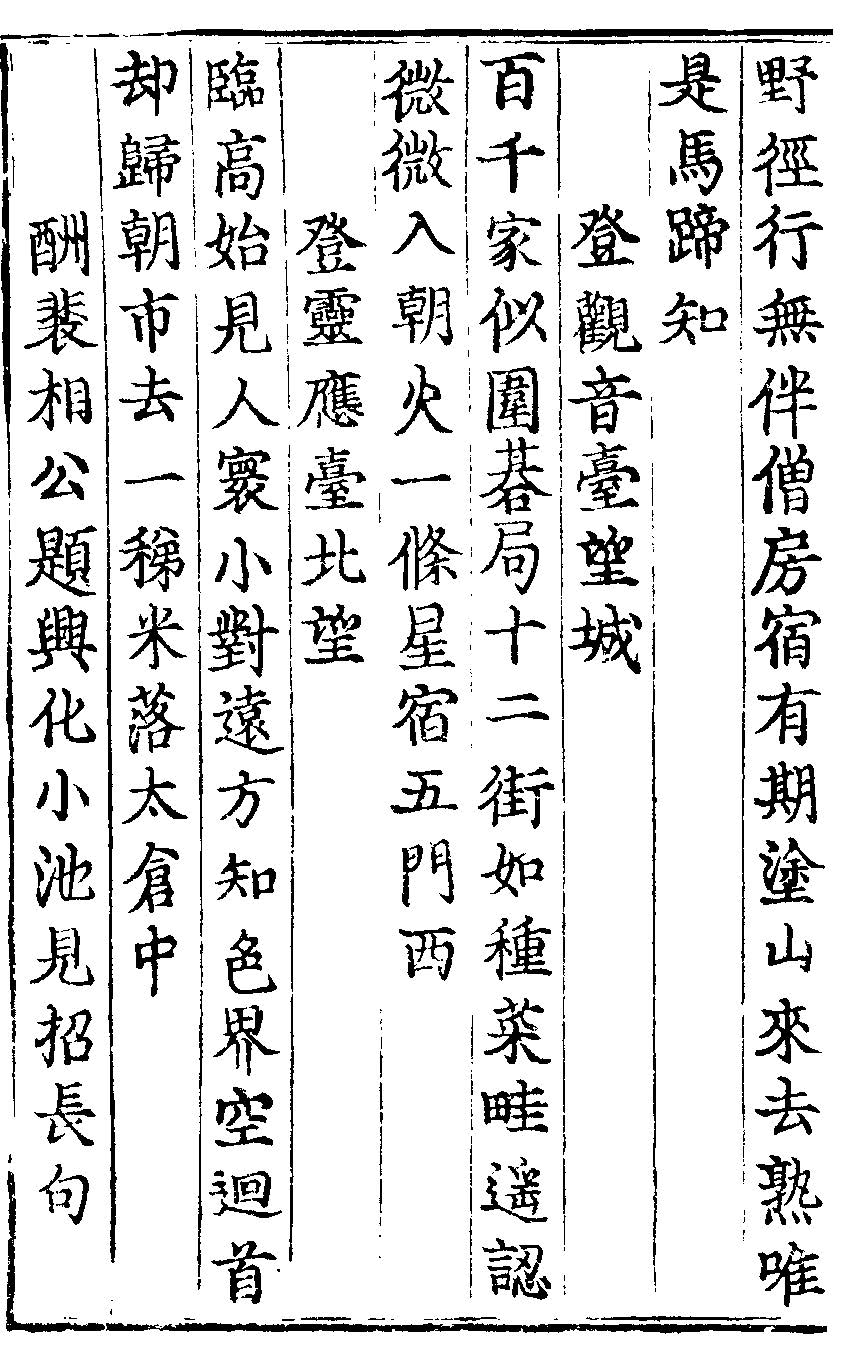 野徑行無伴僧房宿有期塗山來去熟唯
是馬蹄知
登觀音臺望城
百千家似圍碁局十二街如種菜畦遥認
微微入朝火一條星宿五門西
登靈應臺北望
臨高始見人寰小對遠方知色界空迴首
却歸朝市去一稊米落太倉中
酬裴相公題興化小池見招長句